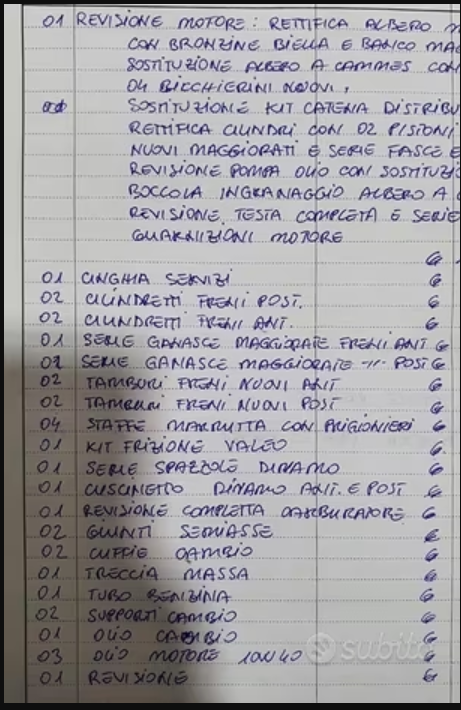 01 REVISIONE MOTORE: RETTIFICA ALBERO M
CON BRONZINE BIELLA E BANCO MAG
SOSTITUZIONE ALBERO A CAMMES CON
04 BICCHIERINI NUOVI,
SOSTITUZIONE KIT CATENA DISTRIBU
RETTIFICA CILINDRI CON 02 PISTONI
NUOVI MAGGIORATI E SERIE FASCE E
REVISIONE POMPA OLIO CON SOSTITUZIO
BOCCOLA INGRANAGGIO ALBERO A C
REVISIONE TESTA COMPLETA E SERIE
GUARNIZIONI MOTORE
€
01 CINGHIA SERVIZI €
02 CILINDRETTI FRENI POST. €
02 CILINDRETTI FRENI ANT. €
01 SERIE GANASCE MAGGIORATE FRENI ANT €
01 SERIE GANASCE MAGGIORATE -"- POST €
02 TAMBURI FRENI NUOVI ANT €
02 TAMBURI FRENI NUOVI POST €
04 STAFFE MARMITTA CON PRIGIONIERI €
01 KIT FRIZIONE VALEO €
01 SERIE SPAZZOLE DINAMO €
01 CUSCINETTO DINAMO ANT. E POST €
01 REVISIONE COMPLETA CARBURATORE €
02 GIUNTI SEMIASSE €
02 CUFFIE CAMBIO €
01 TRECCIA MASSA €
01 TUBO BENZINA €
02 SUPPORTI CAMBIO €
01 OLIO CAMBIO €
03 OLIO MOTORE 10W40 €
01 REVISIONE €
subito